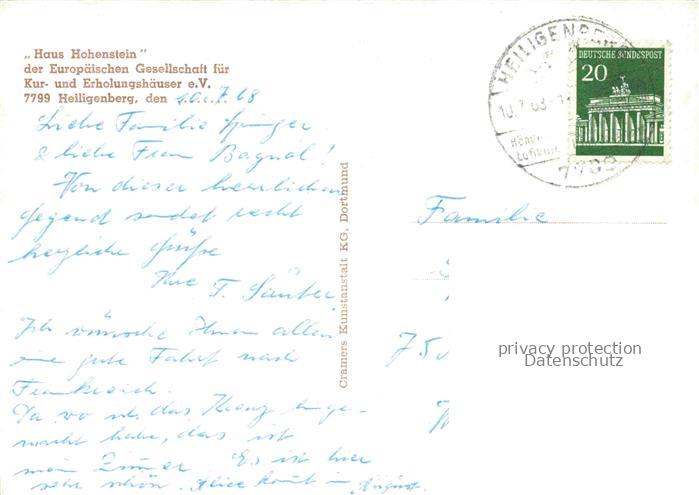 „Haus Hohenstein"
der Europäischen Gesellschaft für
Kur- und Erholungshäuser e.V.
7799 Heiligenberg, den 10.7.68
Liebe Familie Springer
& liebe Frau Bagnal!
Von dieser herrlichen
Gegend sendet recht
herzliche Grüße
Ihre T. Säuber
Ich wünsche Ihnen allen
eine gute Fahrt nach
Frankreich.
Da wo ich das Kreuz hinge-
macht habe, das ist
mein Zimmer. Es ist hier
sehr schön. Alice kommt im August.
Cramers Kunstanstalt KG, Dortmund
HEILIGENBERG
10.7.68
7799
DEUTSCHE BUNDESPOST
20
Familie
750
privacy protection
Datenschutz